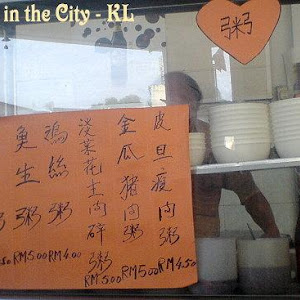 in the City - KL
粥
皮旦瘦肉粥
RM4.50
金瓜猪肉粥
RM5.00
淡菜花生肉碎粥
RM5.00
鸡絲粥
RM4.00
魚生粥
RM5.00
粥